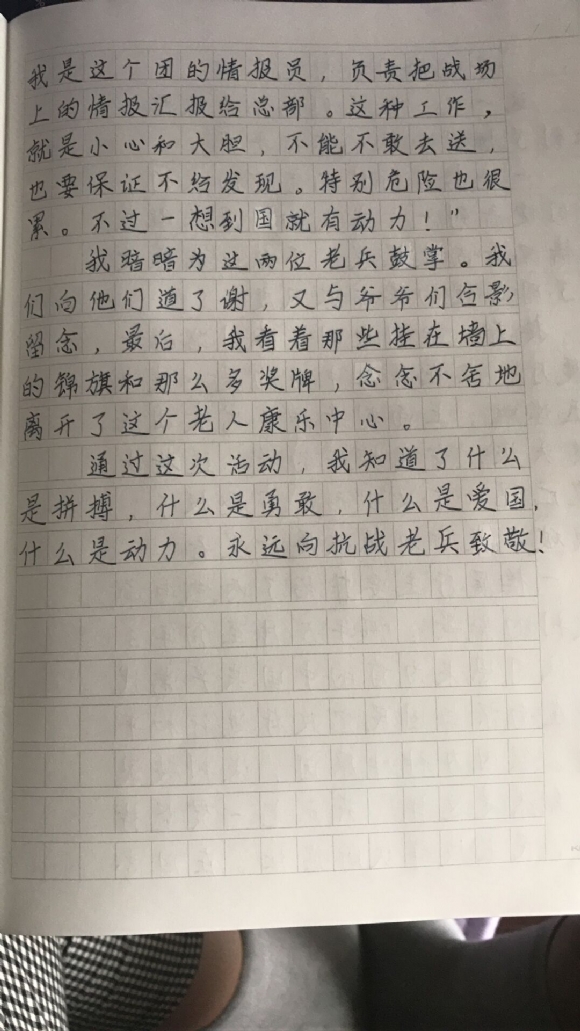 我是这个团的情报员，负责把战场
上的情报汇报给总部。这种工作，
就是小心和大胆，不能不敢去送，
也要保证不给发现。特别危险也很
累。不过一想到国就有动力！”
我暗暗为这两位老兵鼓掌。我
们向他们道了谢，又与爷爷们合影
留念，最后，我看着那些挂在墙上
的锦旗和那么多奖牌，念念不舍地
离开了这个老人康乐中心。
通过这次活动，我知道了什么
是拼搏，什么是勇敢，什么是爱国，
什么是动力。永远向抗战老兵致敬！